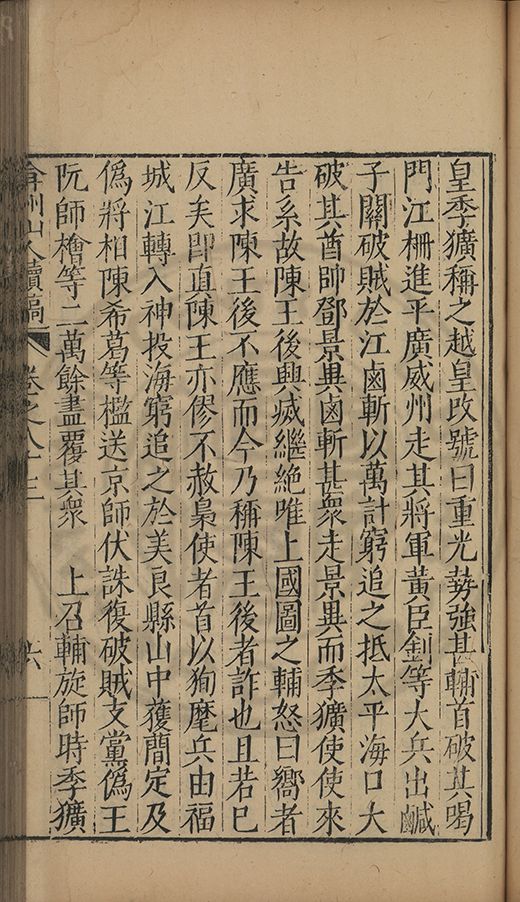 皇季獷稱之越皇改號曰重光勢強甚輔首破其喝
門江柵進平廣威州走其將軍黃臣釗等大兵出鹹
子關破賊於江鹵斬以萬計窮追之抵太平海口大
破其酋帥鄧景異鹵斬甚衆走景異而季獷使使來
告系故陳王後興滅繼絶唯上國圖之輔怒曰嚮者
廣求陳王後不應而今乃稱陳王後者詐也且若已
反矣卽直陳王亦僇不赦梟使者首以狥麾兵由福
城江轉入神投海窮追之於美良縣山中獲簡定及
僞將相陳希葛等檻送京師伏誅復破賊支黨僞王
阮師檜等二萬餘盡覆其衆　上召輔旋師時季獷
弇州山人續稿　卷之八十三　六